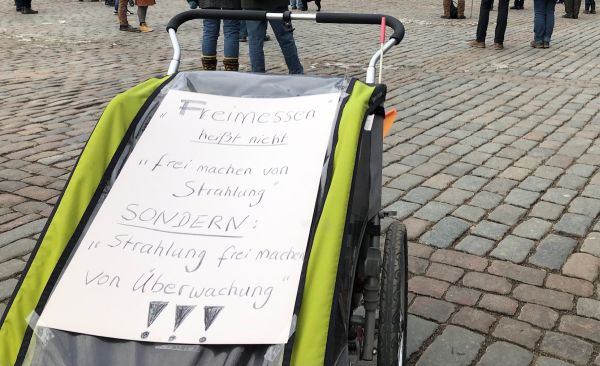 „Freimessen"
heißt nicht
„frei machen von
Strahlung"
SONDERN:
„Strahlung frei machen
von Überwachung"
!!!